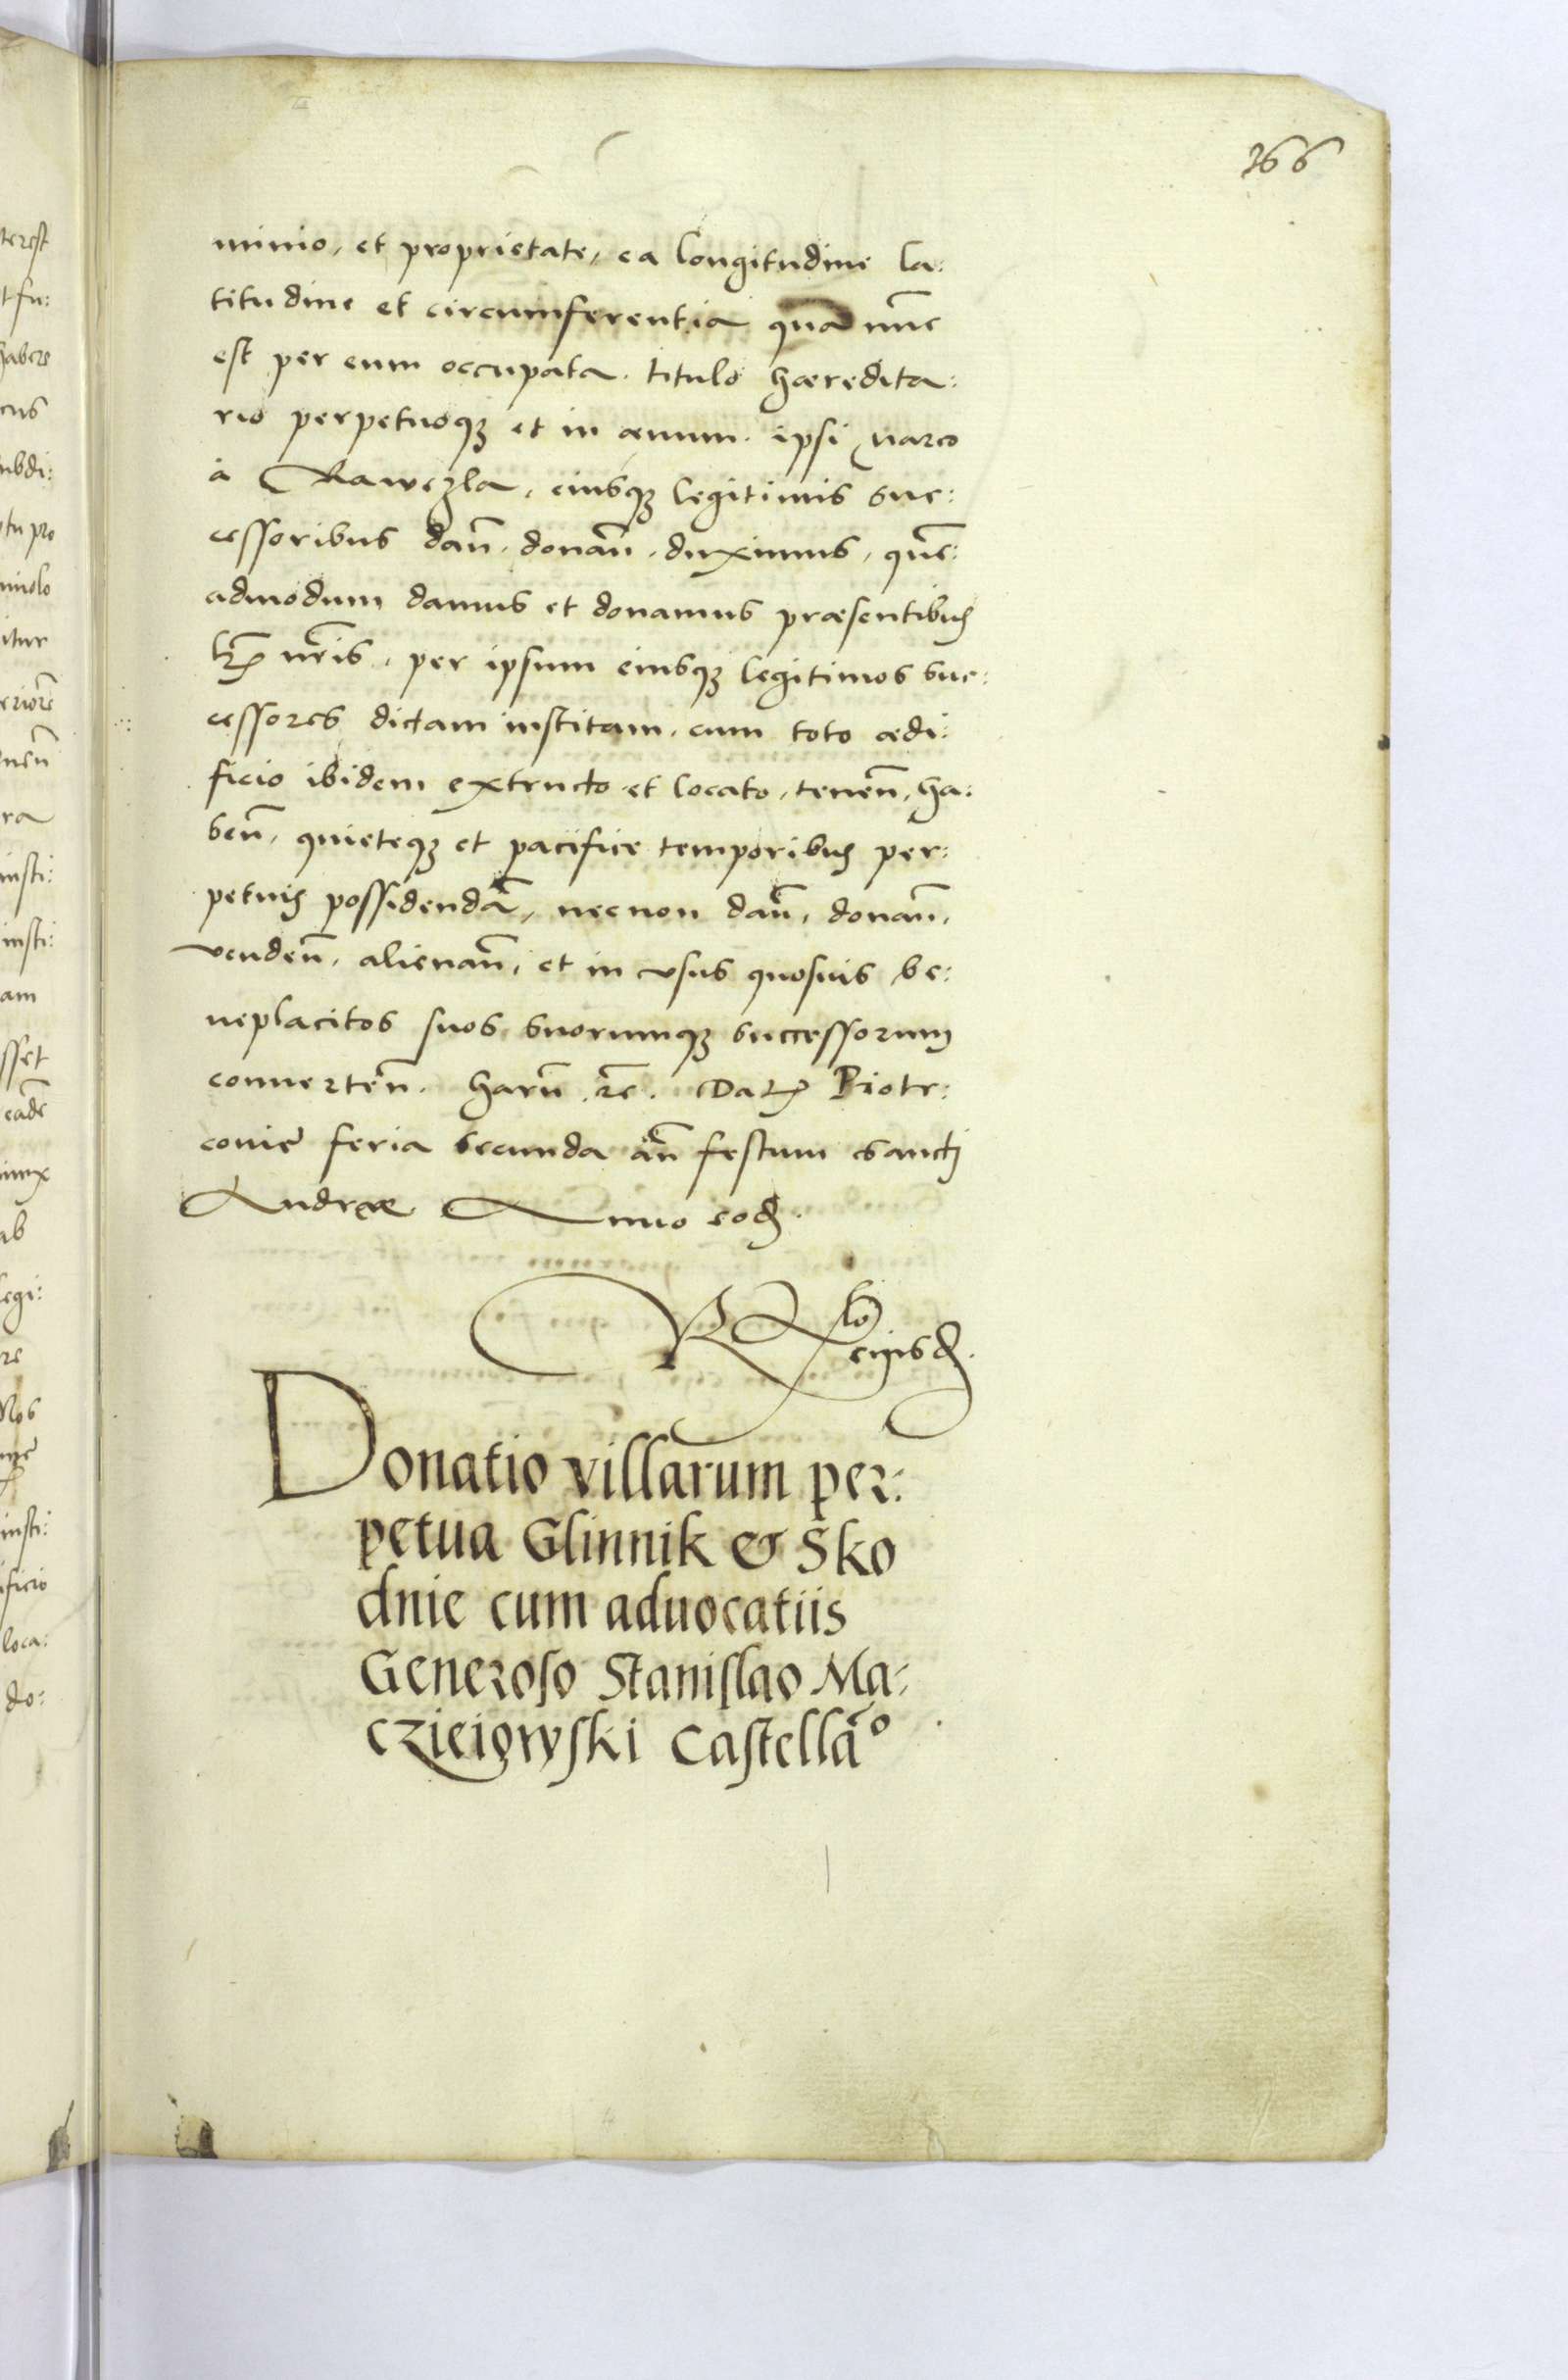 266
minio, et proprietate, ea longitudine la:
titudine et circumferentia qua nũc
est per eum occupata. titulo hæredita:
rio perpetuoqꝫ et in æuum. ipsi Marco
à Rawczla, eiusqꝫ legitimis suc:
cessoribus dañ. donañ. duximus, quẽ:
admodum damus et donamus præsentibus
lrꝭ nr̃is, per ipsum eiusqꝫ legitimos suc:
cessores dictam institam, cum toto ædi:
ficio ibidem extructo et locato, teneñ, ha:
beñ, quieteqꝫ et pacifice temporibus per:
petuis possidendã, necnon dañ, donañ,
vendeñ, alienañ, et in vsus quosuis be:
neplacitos suos suorumqꝫ successorum
conuerteñ. harũ rẽ. Datꝭ Piotr:
couie feria secunda añ festum Sancti
Andreæ Anno eod.
Rlo
eiusd.
Donatio villarum per:
petua Glinnik & Sko
dnie cum aduocatiis
Generoso Stanislao Ma:
czieiowski Castellãº
terest
t fu:
habere
cus
ubdi:
tu pro
itur
eriorẽ
ra
insti:
insti:
am
sset
eadẽ
ab
legi:
re
Nos
insti:
ificio
loca:
do: